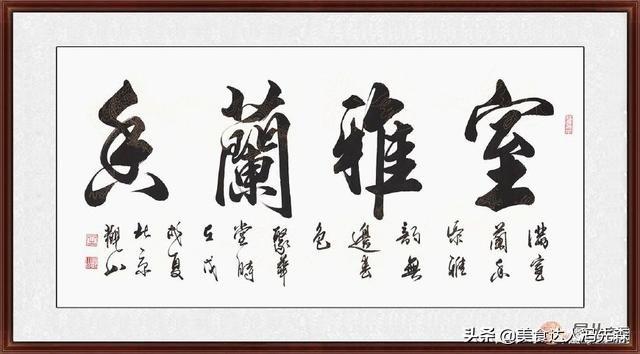 室雅蘭香
滿室
蘭香
添雅
韻無
邊春
色
聚華
堂時
在戊
戌夏
北京
觀山
头条 @美食达人冯先森